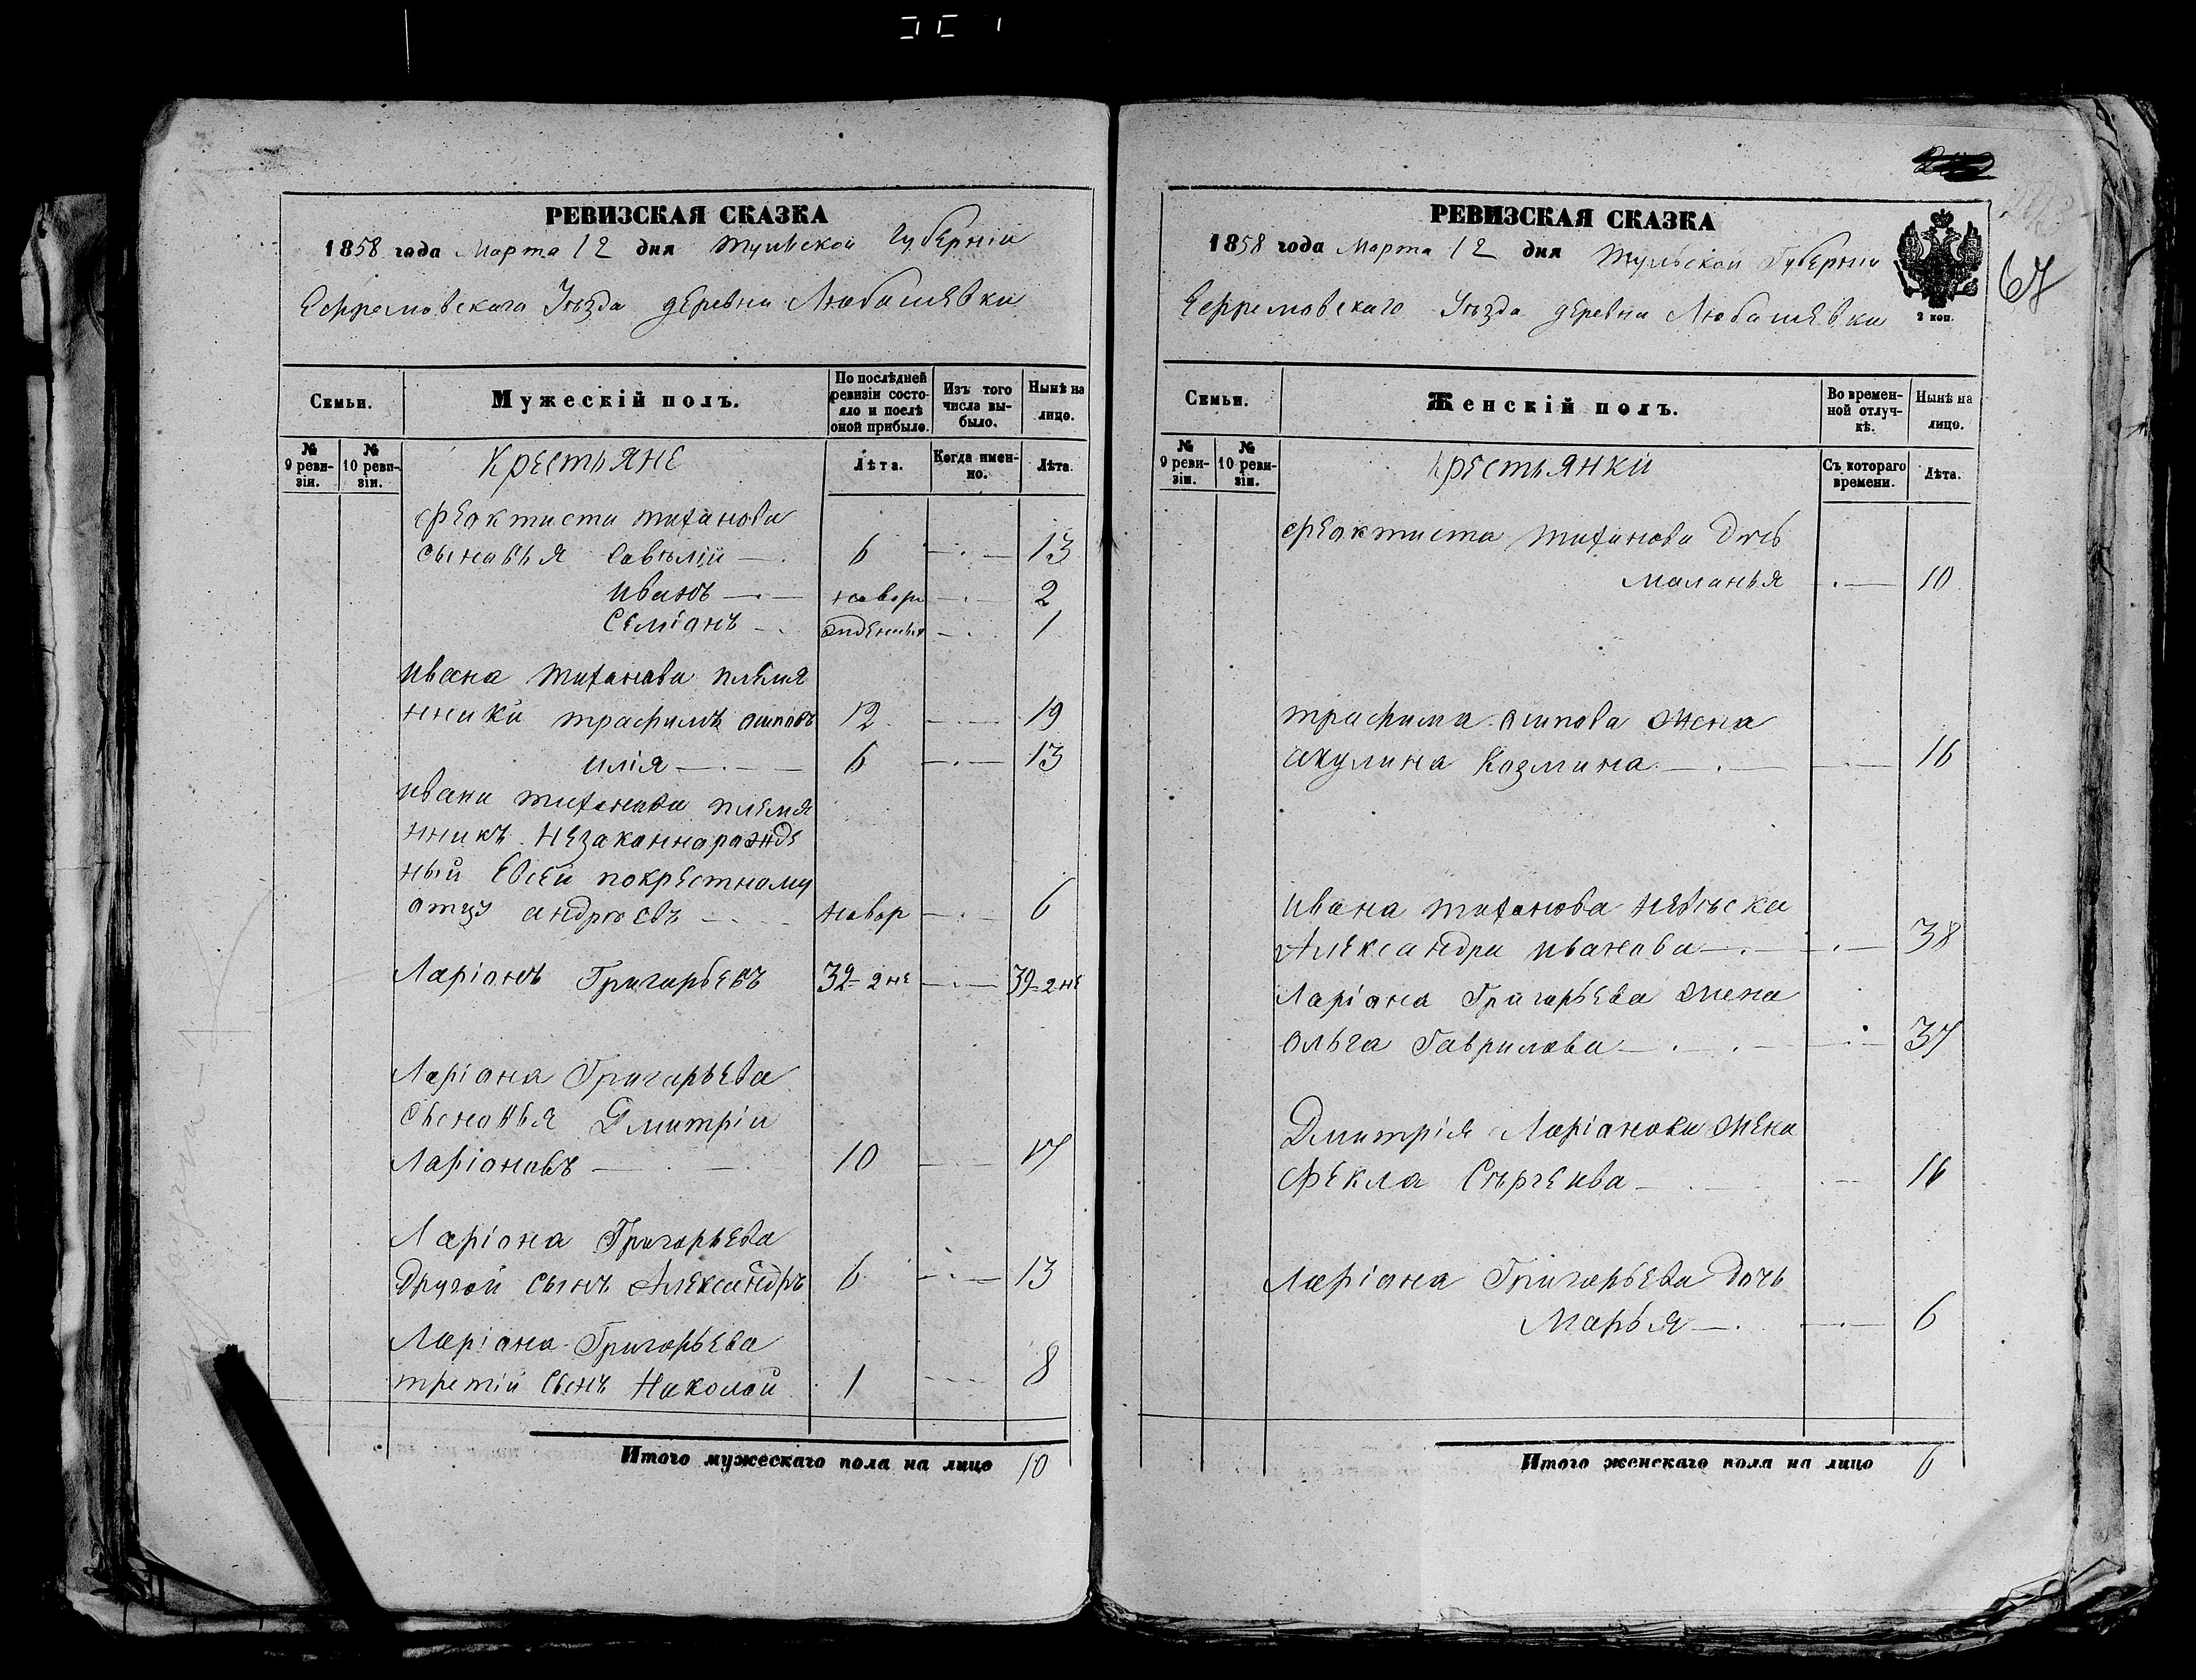 РЕВИЗСКАЯ СКАЗКА
1858 года Марта 12 дня Тульской Губерніи
Ефремовскаго Уѣзда деревни Любашевки
Семьи.
Мужескій полъ.
По послѣдней ревизіи состояло и послѣ оной прибыло.
Изъ того числа выбыло.
Нынѣ на лицо.
№ 9 ревизіи.
№ 10 ревизіи.
Крестьяне
Лѣта.
Когда именно.
Лѣта.
Феоктиста титанова
сыновья Савѣлій — 6 — 13
иванъ — навор — 2
Семіонъ — — 1
ивана титанова племя
нники трафимъ осиповъ 12 — 19
илія — 6 — 13
ивана титанова племя
нникъ незаконнорожде
ный Евсей покрестному
отцу андрюевъ — навор — 6
Ларіонъ Григорьевъ 32-2 не — 39-2 не
Ларіона Григорьева
сыновья Дмитріи
Ларіоновъ — 10 — 17
Ларіона Григорьева
другой сынъ Александръ 6 — 13
Ларіона Григорьева
третій сынъ Николай 1 — 8
Итого мужескаго пола на лицо 10
РЕВИЗСКАЯ СКАЗКА
1858 года Марта 12 дня Тульской Губерніи
67
Ефремовскаго Уѣзда деревни Любашевки
2 коп.
Семьи.
Женскій полъ.
Во временной отлучкѣ.
Нынѣ на лицо.
№ 9 ревизіи.
№ 10 ревизіи.
Крестьянки
Съ котораго времени.
Лѣта.
Феоктиста титанова Дочь
Маланья — 10
трафима осипова жена
акулина Козмина — 16
ивана титанова невѣска
Александра иванова — 38
Ларіона Григорьева жена
Ольга Гаврилова — 37
Дмитрія Ларіонова жена
Фекла Сѣргеива — 16
Ларіона Григорьева дочь
Марья — 6
Итого женскаго пола на лицо 6